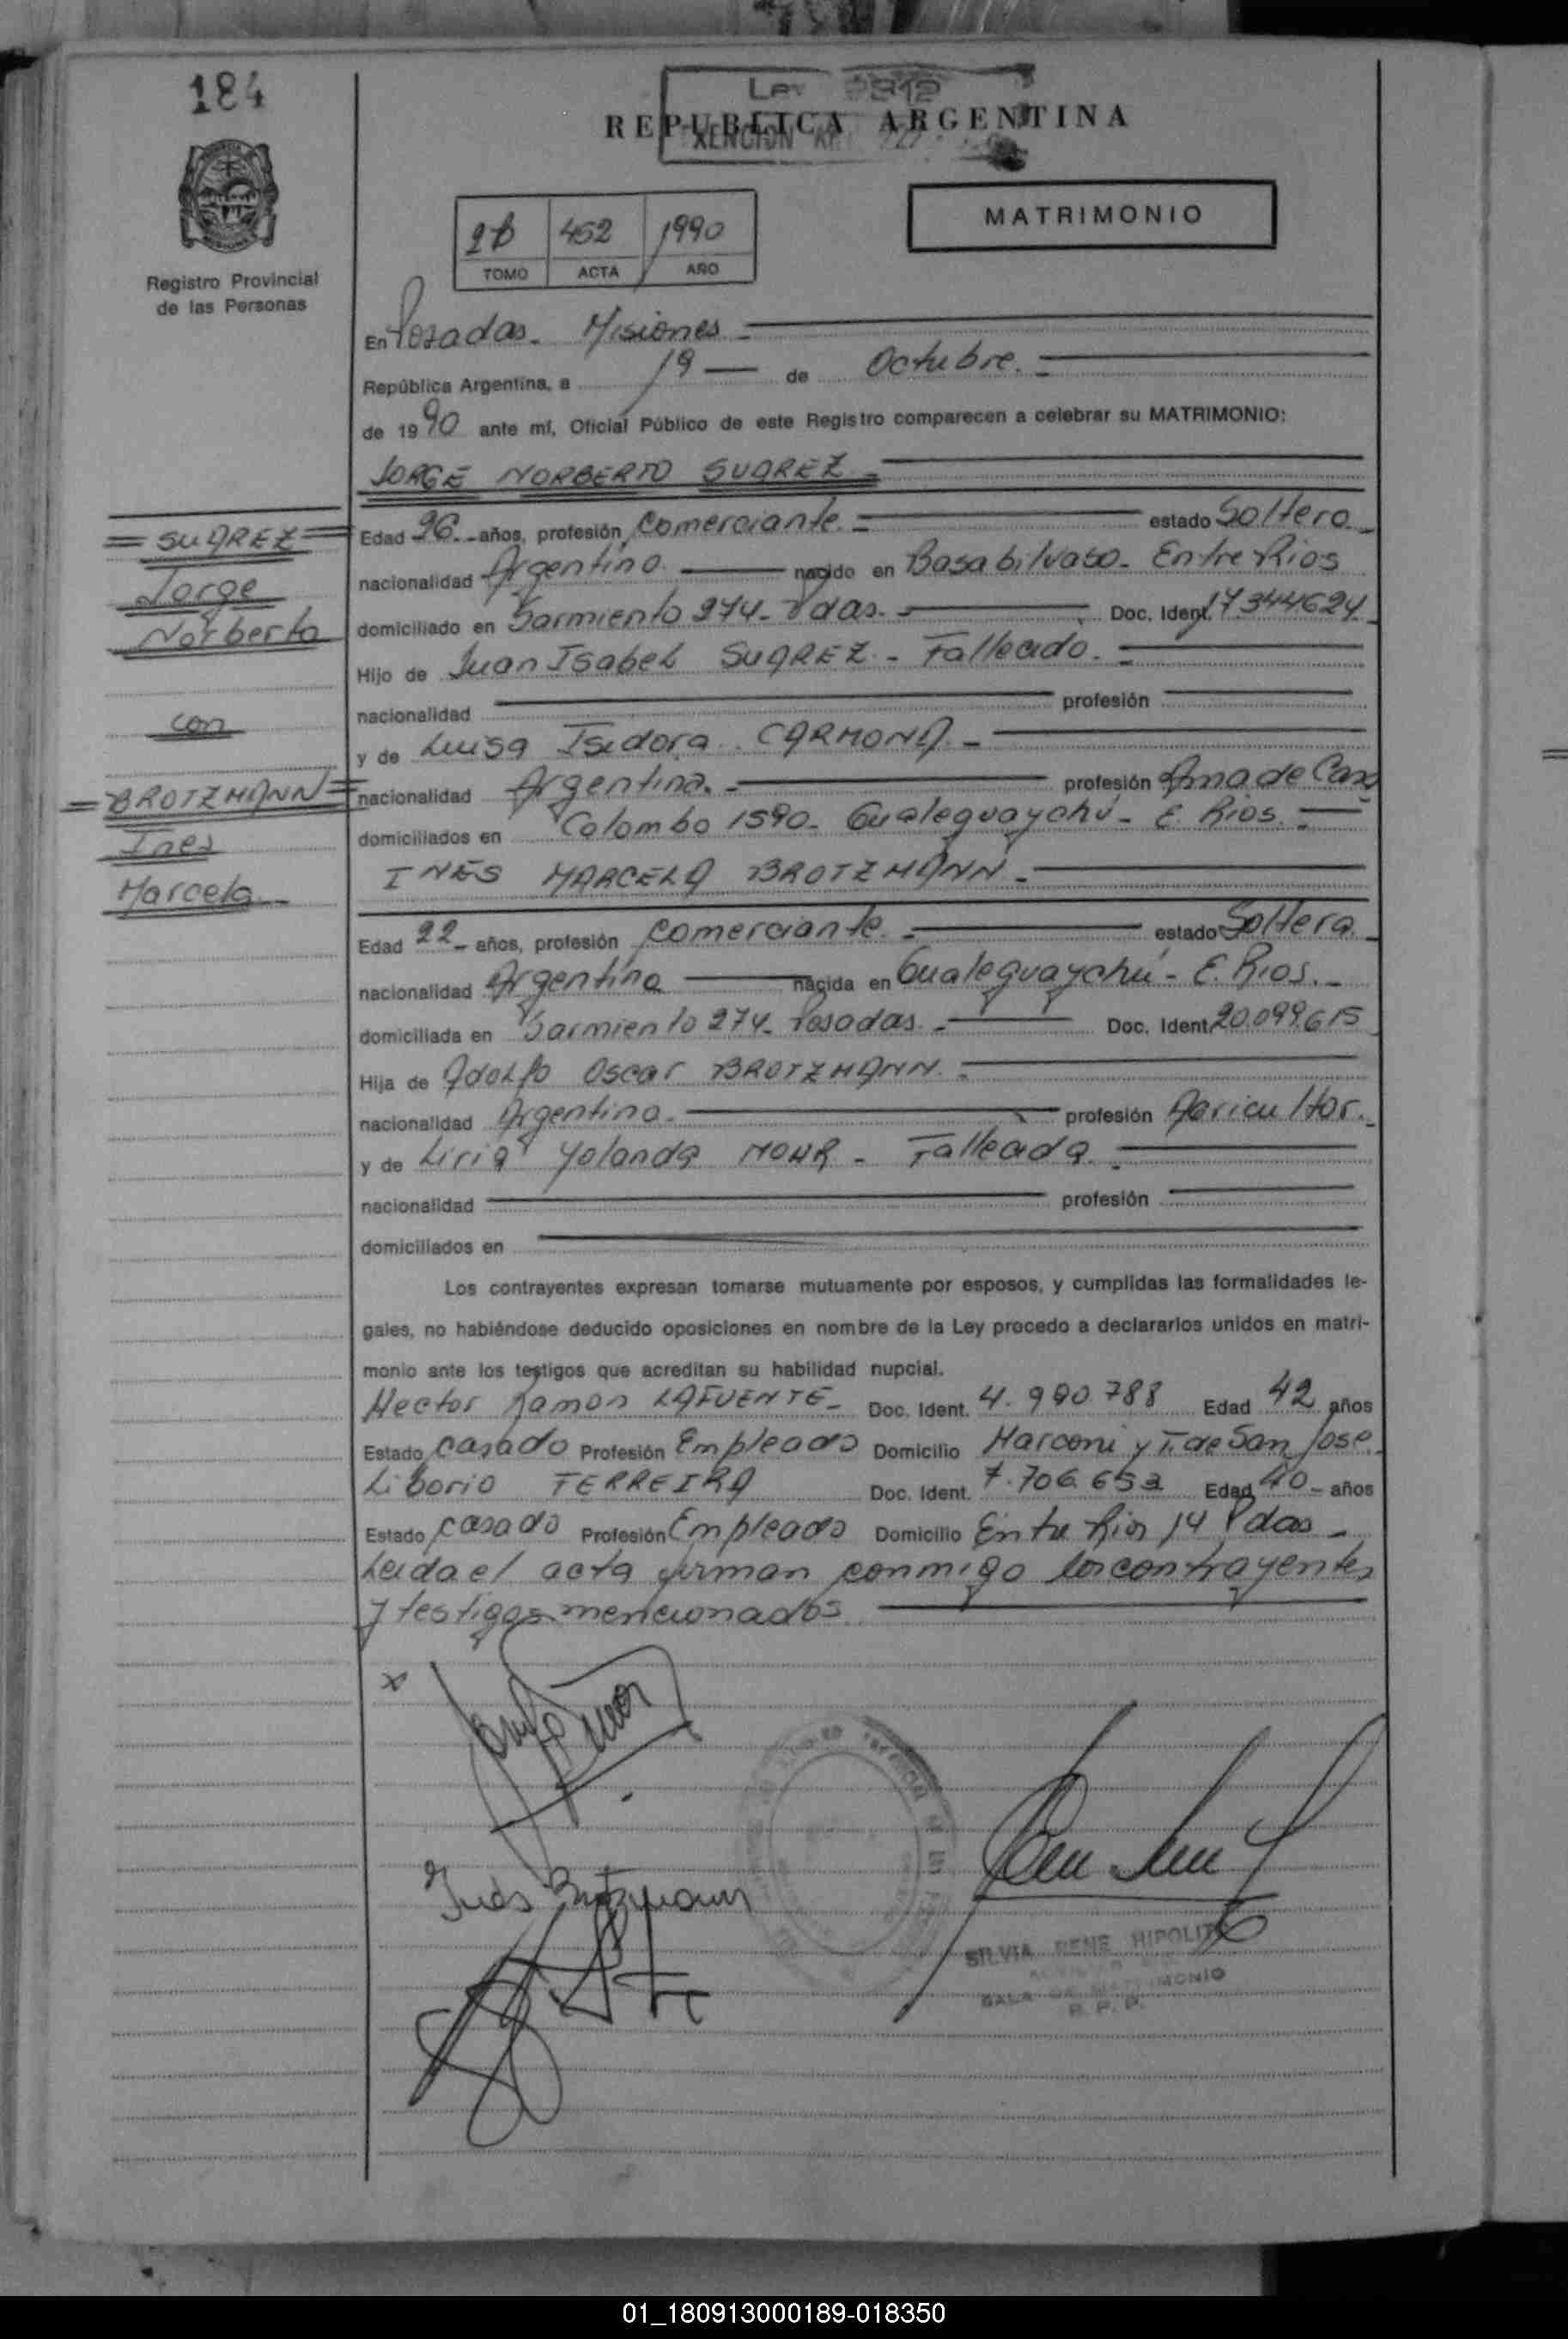 184
Ley 2912
REPUBLICA ARGENTINA
MATRIMONIO
452 1990
TOMO ACTA AÑO
Registro Provincial
de las Personas
En Posadas - Misiones -
República Argentina, a 19 — de Octubre. -
de 1990 ante mí, Oficial Público de este Registro comparecen a celebrar su MATRIMONIO:
JORGE NORBERTO SUAREZ -
= SUAREZ =
Jorge
Norberto
con
= BROTZMANN =
Ines
Marcela -
Edad 26 - años, profesión Comerciante. - estado Soltero. -
nacionalidad Argentino. — nacido en Basabilvaso - Entre Rios
domiciliado en Sarmiento 274 - Pdas. - Doc. Ident. 17.344624 -
Hijo de Juan Isabel SUAREZ - Fallecido. -
nacionalidad profesión
y de Luisa Isidora CARMONA -
nacionalidad Argentina. - profesión Ama de Casa
domiciliados en Colombo 1590 - Gualeguaychú - E. Rios. -
INES MARCELA BROTZMANN -
Edad 22 - años, profesión Comerciante. - estado Soltera. -
nacionalidad Argentina — nacida en Gualeguaychú - E. Rios. -
domiciliada en Sarmiento 274 - Posadas. - Doc. Ident. 20.099.615
Hija de Adolfo Oscar BROTZMANN. -
nacionalidad Argentino. - profesión Agricultor. -
y de Liria Yolanda MOHR - Fallecida. -
nacionalidad profesión
domiciliados en
Los contrayentes expresan tomarse mutuamente por esposos, y cumplidas las formalidades le-
gales, no habiéndose deducido oposiciones en nombre de la Ley procedo a declararlos unidos en matri-
monio ante los testigos que acreditan su habilidad nupcial.
Hector Ramon LAFUENTE - Doc. Ident. 4.990.788 Edad 42 años
Estado Casado Profesión Empleado Domicilio Marconi y T. de San Jose.
Liborio FERREIRA Doc. Ident. 7.706.652 Edad 40 - años
Estado Casado Profesión Empleado Domicilio Entre Rios 14 Pdas -
Leida el acta firman conmigo los contrayentes
y testigos mencionados
x
Inés Brotzmann
SILVIA RENE HIPOLITO
SALA DE MATRIMONIO
R. P. P.
01_180913000189-018350